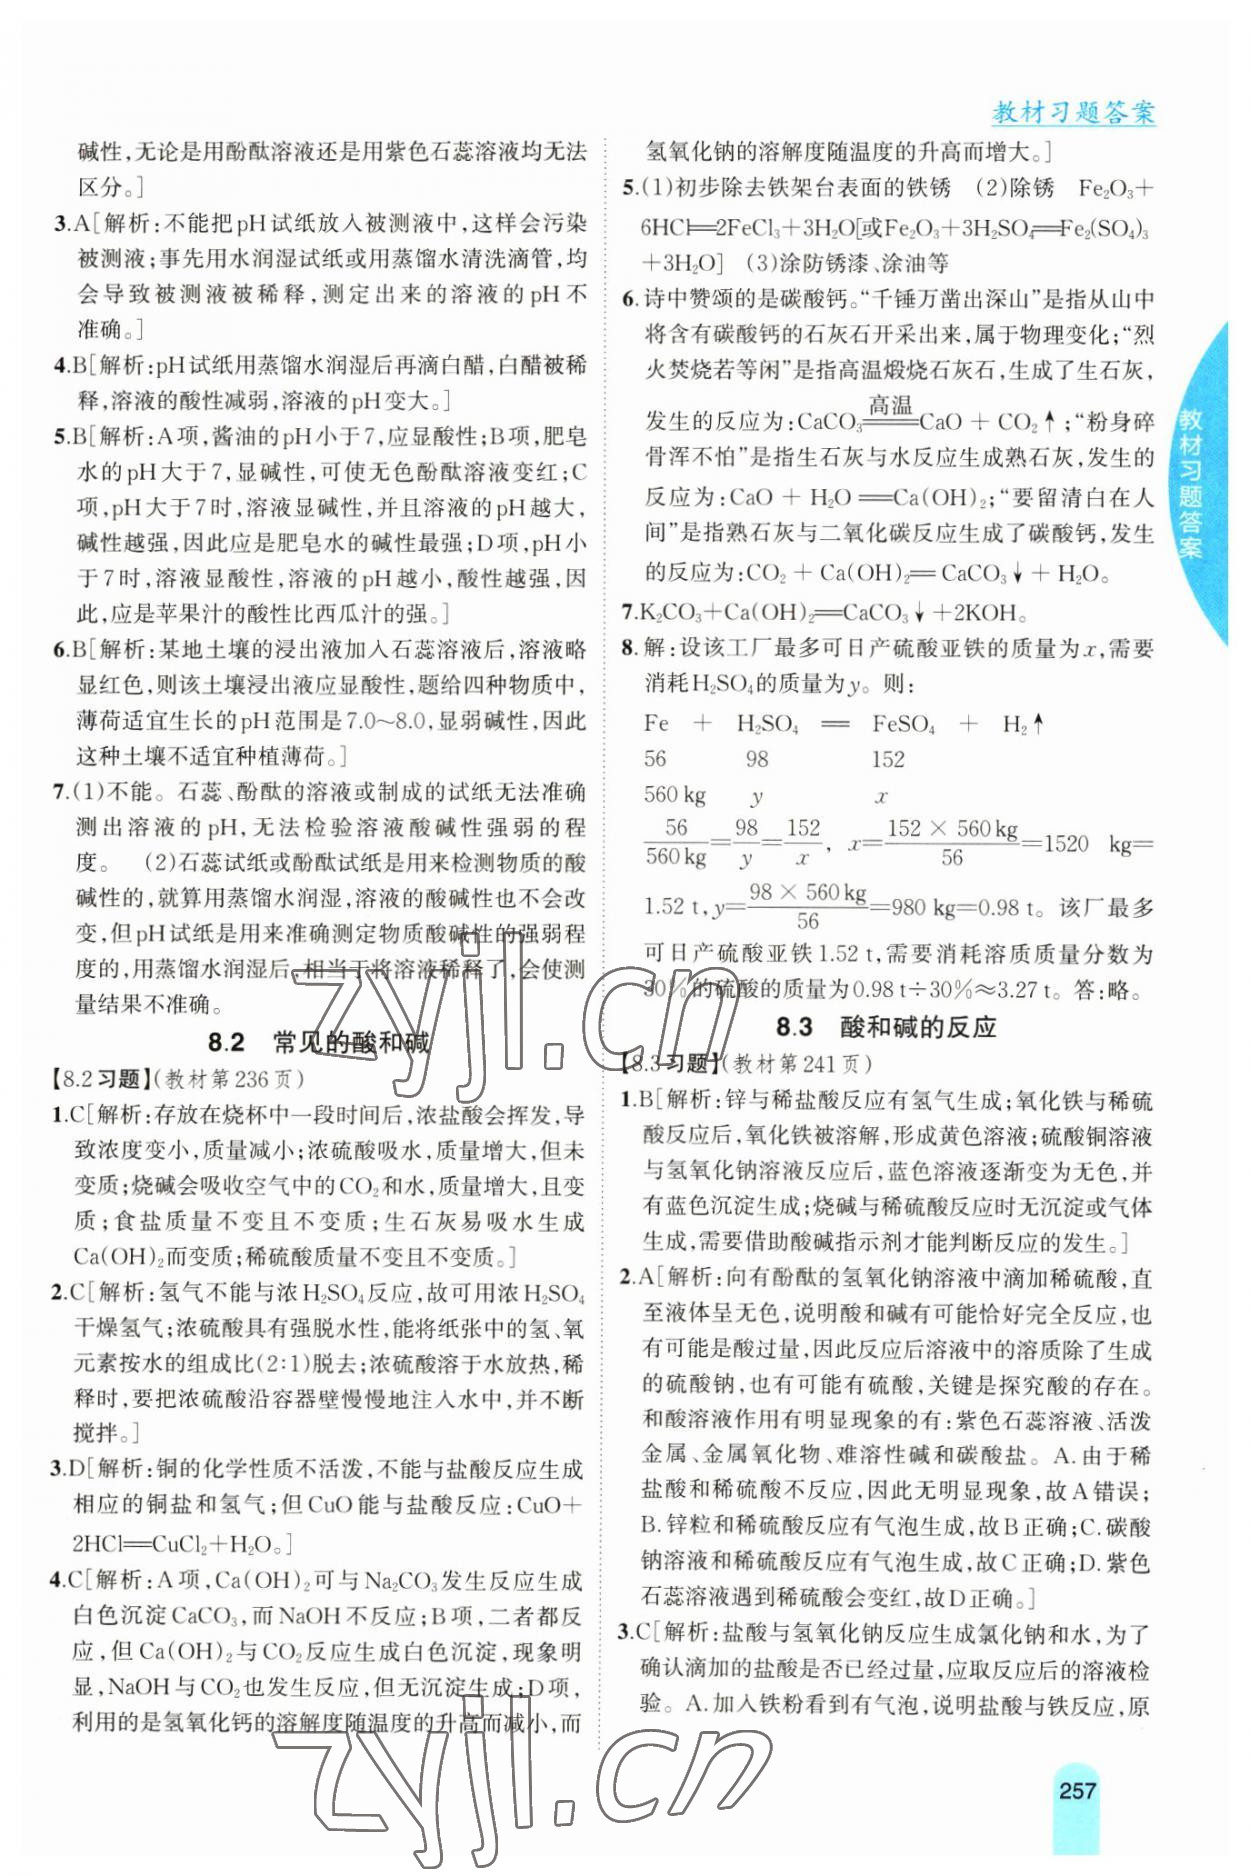 教材习题答案
碱性,无论是用酚酞溶液还是用紫色石蕊溶液均无法
区分。]
3.A[解析:不能把pH试纸放入被测液中,这样会污染
被测液;事先用水润湿试纸或用蒸馏水清洗滴管,均
会导致被测液被稀释,测定出来的溶液的pH不
准确。]
4.B[解析:pH试纸用蒸馏水润湿后再滴白醋,白醋被稀
释,溶液的酸性减弱,溶液的pH变大。]
5.B[解析:A项,酱油的pH小于7,应显酸性;B项,肥皂
水的pH大于7,显碱性,可使无色酚酞溶液变红;C
项,pH大于7时,溶液显碱性,并且溶液的pH越大,
碱性越强,因此应是肥皂水的碱性最强;D项,pH小
于7时,溶液显酸性,溶液的pH越小,酸性越强,因
此,应是苹果汁的酸性比西瓜汁的强。]
6.B[解析:某地土壤的浸出液加入石蕊溶液后,溶液略
显红色,则该土壤浸出液应显酸性,题给四种物质中,
薄荷适宜生长的pH范围是7.0～8.0,显弱碱性,因此
这种土壤不适宜种植薄荷。]
7.(1)不能。石蕊、酚酞的溶液或制成的试纸无法准确
测出溶液的pH,无法检验溶液酸碱性强弱的程
度。 (2)石蕊试纸或酚酞试纸是用来检测物质的酸
碱性的,就算用蒸馏水润湿,溶液的酸碱性也不会改
变,但pH试纸是用来准确测定物质酸碱性的强弱程
度的,用蒸馏水润湿后,相当于将溶液稀释了,会使测
量结果不准确。
8.2 常见的酸和碱
【8.2习题】(教材第236页)
1.C[解析:存放在烧杯中一段时间后,浓盐酸会挥发,导
致浓度变小,质量减小;浓硫酸吸水,质量增大,但未
变质;烧碱会吸收空气中的CO₂和水,质量增大,且变
质;食盐质量不变且不变质;生石灰易吸水生成
Ca(OH)₂而变质;稀硫酸质量不变且不变质。]
2.C[解析:氢气不能与浓H₂SO₄反应,故可用浓H₂SO₄
干燥氢气;浓硫酸具有强脱水性,能将纸张中的氢、氧
元素按水的组成比(2:1)脱去;浓硫酸溶于水放热,稀
释时,要把浓硫酸沿容器壁慢慢地注入水中,并不断
搅拌。]
3.D[解析:铜的化学性质不活泼,不能与盐酸反应生成
相应的铜盐和氢气;但CuO能与盐酸反应:CuO+
2HCl══CuCl₂+H₂O。]
4.C[解析:A项,Ca(OH)₂可与Na₂CO₃发生反应生成
白色沉淀CaCO₃,而NaOH不反应;B项,二者都反
应,但Ca(OH)₂与CO₂反应生成白色沉淀,现象明
显,NaOH与CO₂也发生反应,但无沉淀生成;D项,
利用的是氢氧化钙的溶解度随温度的升高而减小,而
氢氧化钠的溶解度随温度的升高而增大。]
5.(1)初步除去铁架台表面的铁锈 (2)除锈 Fe₂O₃+
6HCl══2FeCl₃+3H₂O[或Fe₂O₃+3H₂SO₄══Fe₂(SO₄)₃
+3H₂O] (3)涂防锈漆、涂油等
6.诗中赞颂的是碳酸钙。“千锤万凿出深山”是指从山中
将含有碳酸钙的石灰石开采出来,属于物理变化;“烈
火焚烧若等闲”是指高温煅烧石灰石,生成了生石灰,
发生的反应为:CaCO₃ 高温══ CaO + CO₂↑;“粉身碎
骨浑不怕”是指生石灰与水反应生成熟石灰,发生的
反应为:CaO + H₂O ══Ca(OH)₂;“要留清白在人
间”是指熟石灰与二氧化碳反应生成了碳酸钙,发生
的反应为:CO₂ + Ca(OH)₂══ CaCO₃↓ + H₂O。
7.K₂CO₃+Ca(OH)₂══CaCO₃↓+2KOH。
8.解:设该工厂最多可日产硫酸亚铁的质量为x,需要
消耗H₂SO₄的质量为y。则:
Fe + H₂SO₄ ══ FeSO₄ + H₂↑
56 98 152
560 kg y x
56/560 kg=98/y=152/x, x=152 × 560 kg/56=1520 kg=
1.52 t,y=98 × 560 kg/56=980 kg=0.98 t。该厂最多
可日产硫酸亚铁1.52 t,需要消耗溶质质量分数为
30%的硫酸的质量为0.98 t÷30%≈3.27 t。答:略。
8.3 酸和碱的反应
【8.3习题】(教材第241页)
1.B[解析:锌与稀盐酸反应有氢气生成;氧化铁与稀硫
酸反应后,氧化铁被溶解,形成黄色溶液;硫酸铜溶液
与氢氧化钠溶液反应后,蓝色溶液逐渐变为无色,并
有蓝色沉淀生成;烧碱与稀硫酸反应时无沉淀或气体
生成,需要借助酸碱指示剂才能判断反应的发生。]
2.A[解析:向有酚酞的氢氧化钠溶液中滴加稀硫酸,直
至液体呈无色,说明酸和碱有可能恰好完全反应,也
有可能是酸过量,因此反应后溶液中的溶质除了生成
的硫酸钠,也有可能有硫酸,关键是探究酸的存在。
和酸溶液作用有明显现象的有:紫色石蕊溶液、活泼
金属、金属氧化物、难溶性碱和碳酸盐。A.由于稀
盐酸和稀硫酸不反应,因此无明显现象,故A错误;
B.锌粒和稀硫酸反应有气泡生成,故B正确;C.碳酸
钠溶液和稀硫酸反应有气泡生成,故C正确;D.紫色
石蕊溶液遇到稀硫酸会变红,故D正确。]
3.C[解析:盐酸与氢氧化钠反应生成氯化钠和水,为了
确认滴加的盐酸是否已经过量,应取反应后的溶液检
验。A.加入铁粉看到有气泡,说明盐酸与铁反应,原
教材习题答案
257
zyjl.cn
zyjl.cn